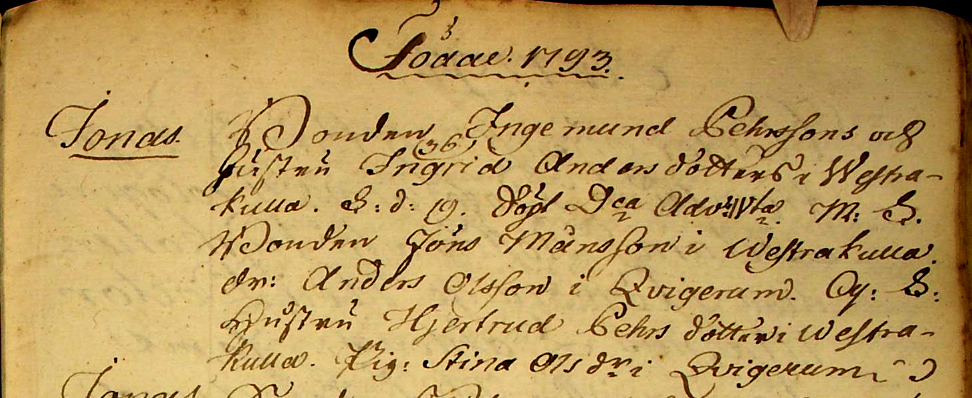 Födde. 1793.
Jonas. Bonden Ingemund Pehrssons och
(36)
Hustru Ingrid Anders dotters i Westra-
kulla. B: d: 19. döpt Dca Advta. M: B.
Bonden Jöns Månsson i Westrakulla.
dr: Anders Olsson i Qvigerum. Qv: B:
Hustru Hjertrud Pehrs dotter i Westra-
kulla. Pig: Stina Ols dr i Qvigerum
Jonas